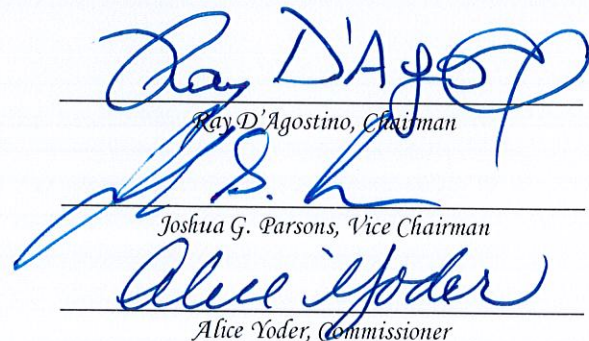 Ray D'Ago
Ray D'Agostino, Chairman
Joshua G. Parsons, Vice Chairman
Alice Yoder
Alice Yoder, Commissioner